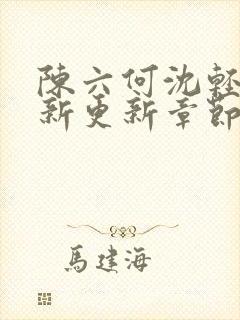 陳六何沈輕
新更新章節
馬建海